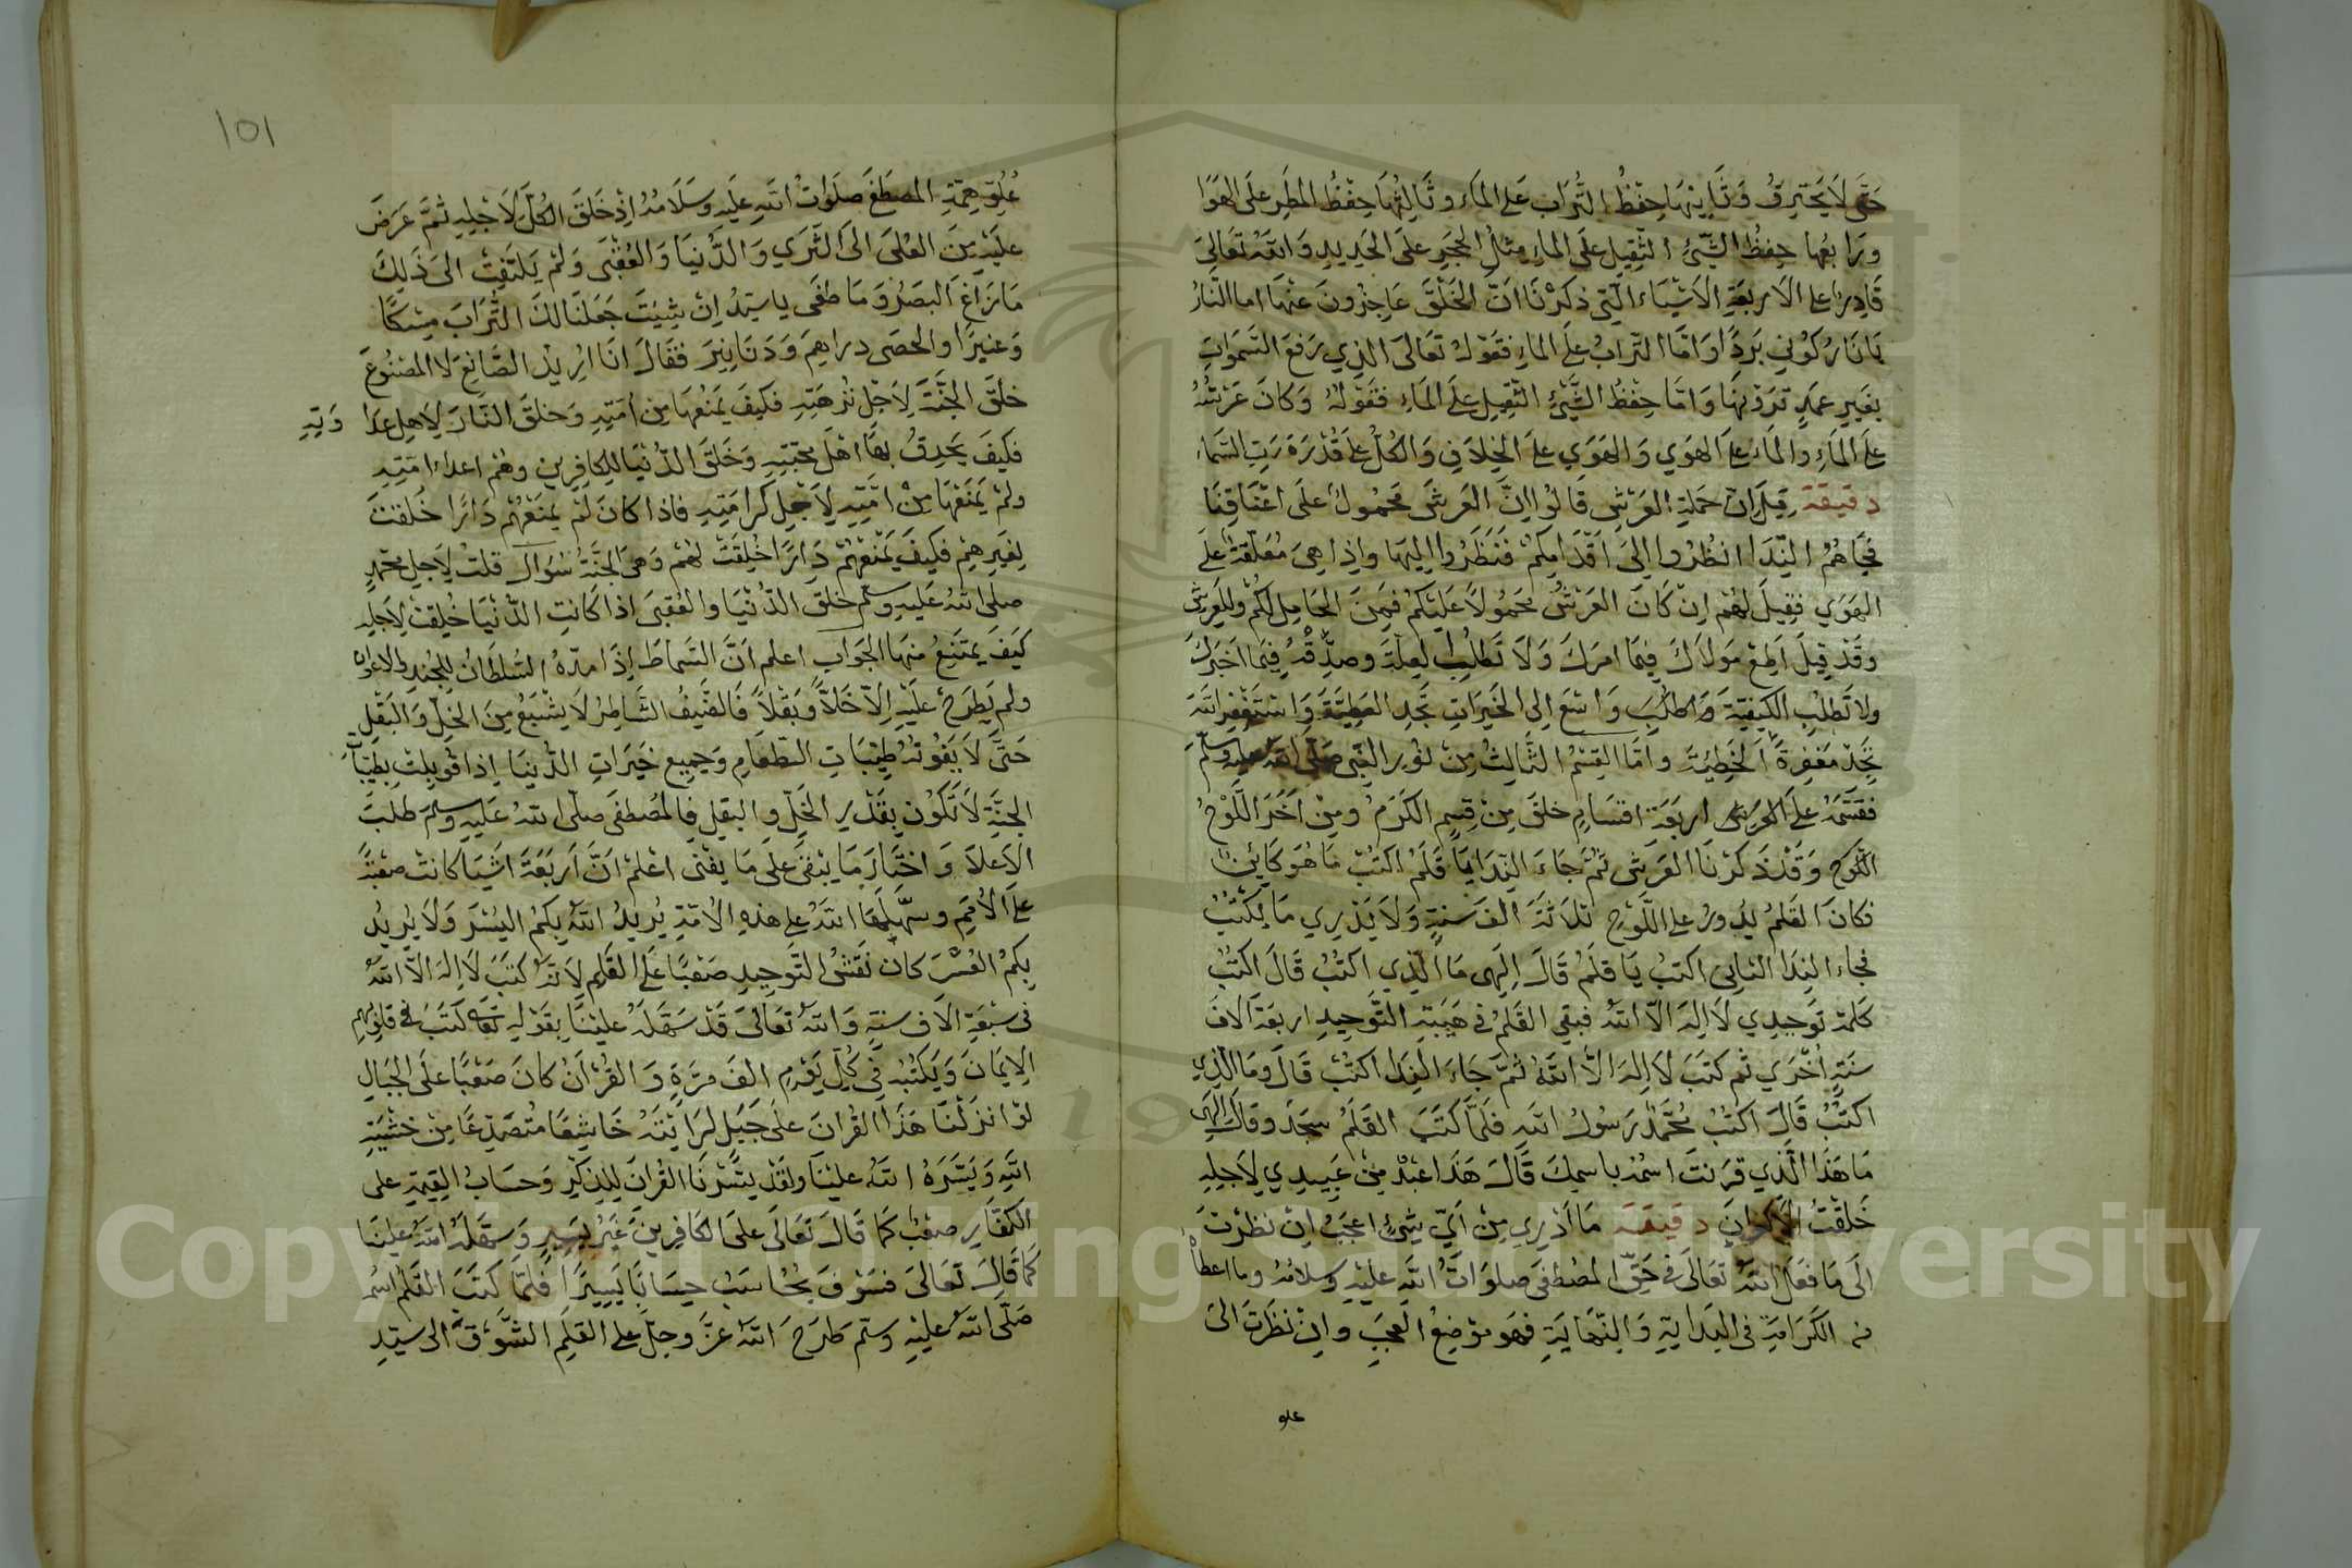 حَتَّى لَا يَحْتَرِقُ وَثَانِيْهَا حِفْظُ التُّرَابِ عَلَى المَاءِ وثَالِثُهَا حِفْظُ المَطَرِ عَلَى الهَوَا
ورَابعُها حِفظُ الشَّيْءِ الثَّقِيلِ عَلَى الماءِ مِثْلُ الحَجَرِ عَلَى الحَدِيدِ وَاللهُ تَعَالَى
قَادِرٌ على الاَربَعَةِ الاَشْيَاءِ الَّتِي ذَكَرْنَا انَّ الخَلْقَ عَاجِزُونَ عَنْهَا اما النَّارُ
يَا نَارُ كُوْنِي بَرْدًا وَامَّا التُرابُ عَلَى الماءِ فقَوْلُهُ تَعَالَى الذِي رَفَعَ السَّمَوَاتِ
بِغَيرِ عمَدٍ تَرَوْنَهَا وَامَّا حِفْظُ الشَّيْءِ الثقِيلِ عَلَى المَاءِ فقَوْلُهُ وَكَانَ عَرْشُهُ
عَلَى المَاءِ والمَاءُ عَلَى الهَوَي وَالهَوَي عَلَى الخِلَافِ وَالكُلُّ عَلَى قُدْرَةِ رَبِّ السَّمَاءِ
دقيقة قِيلَ انّ حَمَلةَ العَرْشِ قَالُوا اِنَّ العَرشَ مَحْمُولٌ عَلَى اَعْنَاقِنَا
فجَاهُمُ النِّدَا انْظُرُوا اِلَى اَقْدَامِكُمْ فَنَظَرُوا اِلَيهَا واِذا هِيَ مُعَلّقَةٌ عَلَى
الهَوَي فَقِيلَ لهُمْ اِنْ كَانَ العَرْشُ مَحْمُولًا عَلَيْكُمْ فمَنِ الحَامِل لكُمْ وللعَرشِ
وقَدْ قِيلَ اَطِعْ مَولَاكَ فِيمَا امرَكَ وَلَا تَطْلُبِ لعِلَّةَ وصَدِّقْهُ فِيمَا اَخبَرَكَ
ولا تَطْلُبِ الكَيْفِيَّةَ وَاطْلُبَ وَاسْعَ الى الخَيرَاتِ تَجِدِ العَطِيَّةَ وَاسْتَغْفِرِ اللهَ
تَجِدْ مَغفِرَةً الخَطِيئَةِ وامَّا القِسْمُ الثَّالِثُ مِنْ نُورِ النَّبِي صَلّى الله عليه وسلّم
فقَسَّمَهُ عَلَى اربَعَةِ اقسَامٍ خلَقَ مِنْ قِسمٍ الكَرَمُ ومِنْ اَخَرَ اللَّوْحُ
اللَّوْح وَقَدْ ذَكَرْنَا العَرَشَ ثمّ جَاءَ النِدَا يَا قَلَمُ اكتُبْ مَا هُوَ كَايِنٌ
فكانَ القَلمُ يدُورُ على اللَّوْحِ ثلاثَةَ الفَ سَنةٍ وَلَا يَدْرِي مَا يَكتُبُ
فجاءَ النِدَا الثانِي اكتبُ يَا قلَمُ قَالَ اِلَهى مَا الّذِي اكتُبُ قَالَ اكْتُبْ
كَلِمَة تَوحِيدِي لَا اِلَهَ اِلَّا اللهُ فبَقِي القَلَمُ في هَيْبَةِ التَّوحِيدِ اربَعَةَ الافَ
سنَةٍ اُخْرَي ثم كتَبَ لا الهَ الاَّ اللهُ ثُمَّ جَاءَ النِدَا اكتُبْ قَالَ ومَا الَّذِي
اكتُبُ قَالَ اكْتُبْ مُحَمَّدٌ رَسُولُ اللهِ فلَمَّا كَتَبَ القَلَمُ سجَدَ وقَالَ اِلَهِي
مَا هَذَا الَّذِي قرَنتَ اسْمُهُ باسمِكَ قَالَ هَذَا عَبْدٌ مِنْ عَبِيدِي لِاَجلِهِ
خَلَقْتُ الاكْوانَ دقيقة مَا اَدْرِي مِنْ اَيِّ شَيْءٍ اعجَبُ اِنْ نَظَرْتَ
الَى مَا فعَلَ اللهُ تعَالَى في حَقِّ المُصْطفَى صلوَاتُ اللهِ عَلَيْهِ وسلامُهُ وما اعطاهُ
مِنَ الكَرَامَةِ في البدَايَةِ وَالنِّهَايَةِ فهُوَ مَوْضِعُ العَجَبِ وانْ نَظَرْتَ الى
علو
١٥١
عُلُوِّ هِمَّةِ المصطَفَى صلَوَاتُ اللهِ عَلَيهِ وسَلَامُهُ اِذْ خَلَقَ الكُلَّ لِاَجْلِهِ ثُمَّ عَرَضَ
عَلَيْهِ مِنَ العُلَى الى الثَّرَي وَالدُّنيَا وَالعُقْبَى وَلَمْ يَلتَفِتْ الى ذَلِكَ
مَا زَاغَ البَصَرُ وَمَا طغَى يا سَيّدُ اِنْ شِيتَ جَعَلْنَا لَكَ التُّرَابَ مِسْكًا
وَعنبَرًا والحصَى دراهِمَ وَدَنَانِيرَ فقَالَ انَا اُرِيدُ الصَّانِعَ لَا المَصْنُوعَ
خلَقَ الجَنَّةَ لِاَجْلِ نُزهَتِهِ فكَيفَ يَمنَعُهَا مِن اُمَّتِهِ وَخلَقَ النّارَ لِاَهلِ عدَا وَتِهِ
فكَيفَ يَحرِقُ بهَا اَهْلَ مَحَبَّتِهِ وَخَلَقَ الدُّنيَا للكافِرِين وهُمْ اعداءُ امَّتِهِ
ولمْ يَمْنَعْهَا مِنْ امَّتِهِ لِاَجْلِ كرامَتِهِ فاذا كانَ لَمْ يَمنَعْهُمْ دَارًا خُلِقَتْ
لِغَيرِهِمْ فكَيفَ يَمْنَعُهُمْ دَارًا خُلِقَتْ لهُمْ وَهيَ الجَنَّةُ سُوَال قلتُ لِاَجلِ محمّدٍ
صلى اللهُ عَليهِ وسلم خلَق الدُّنْيَا والعُقبَى اذا كَانَتِ الدُّنْيَا خُلِقَتْ لِاَجلِهِ
كَيفَ يَمتَنِعُ منهَا الجَوَاب اعلَم انَّ السَّماطَ اِذَا مدّهُ السُلطَانُ للجُندِ والاعوان
ولَم يَطرَحْ عَلَيْهِ اِلّا خَلًّا وَبَقْلًا فَالضَّيفُ الشَّاطِرُ لَا يَشْبَعُ مِنَ الخَلِّ وَالبَقْلِ
حَتَّى لَا يَفُوتَهُ طَيّبَاتِ الطعَامِ وَجَمِيعُ خَيرَاتِ الدُّنيَا اِذا قُوبِلَتْ بِطَيّبَاتِ
الجَنَّةِ لَا تَكُونُ بِقَدْرِ الخَلِّ والبقلِ فالمُصْطفَى صلّى اللهُ عَلَيهِ وسلم طلَبَ
الاَعلَا وَاختَارَ مَا يَبْقَى عَلَى مَا يَفْنى اعْلَمْ انَّ اَربَعَةَ اَشيَا كانتْ صَعْبَةً
عَلَى الاُمَمِ وسَهَّلَهَا اللهُ على هذهِ الاُمَّةِ يُريدُ اللهُ بكُمُ اليُسْرَ وَلَا يُرِيدُ
بِكُمُ العُسْرَ كانَ نَقشُ التَّوحِيدِ صَعْبًا عَلَى القَلَمِ لِاَنّهُ كتَبَ لَا اِلهَ الاَّ اللهُ
في سَبعَةِ الَاف سنَةٍ وَاللهُ تَعَالَى قَدْ سَهَّلَهُ عَلَيْنَا بِقَوْلِهِ تعالى كتَبَ في قلُوبِهِمِ
الاِيمَانَ وَيَكتُبُهُ في كُلِّ يَوْمٍ الفَ مرَّةٍ وَالقُرْآنُ كانَ صَعْبًا عَلَى الجِبَالِ
لوْ انزَلْنَا هَذَا القُرانَ عَلَى جَبَلٍ لرَاَيْتَهُ خَاشِعًا مُتصَدِّعًا مِنْ خَشْيَةِ
اللهِ وَيَسَّرَهُ اللهُ عَلَيْنَا ولَقَدْ يَسَّرْنَا القُرانَ للذِكْرِ وَحسَابُ القِيمَةِ على
الكُفّارِ صعْبٌ كمَا قَالَ تَعَالَى عَلَى الكافِرِينَ غَيْرُ يَسِيرٍ وَسهَّلَهُ اللهُ عَلَينَا
كمَا قَالَ تَعَالَى فَسَوْفَ يُحَاسَبُ حِسَابًا يَسِيرًا فَلمَّا كَتَبَ القَلَمُ اسْمُ
صَلَّى اللهُ عَلَيْهِ وسلّم طرَحَ اللهُ عزَّ وجلَّ على القلَمِ الشَّوْقَ الى سيّدِ